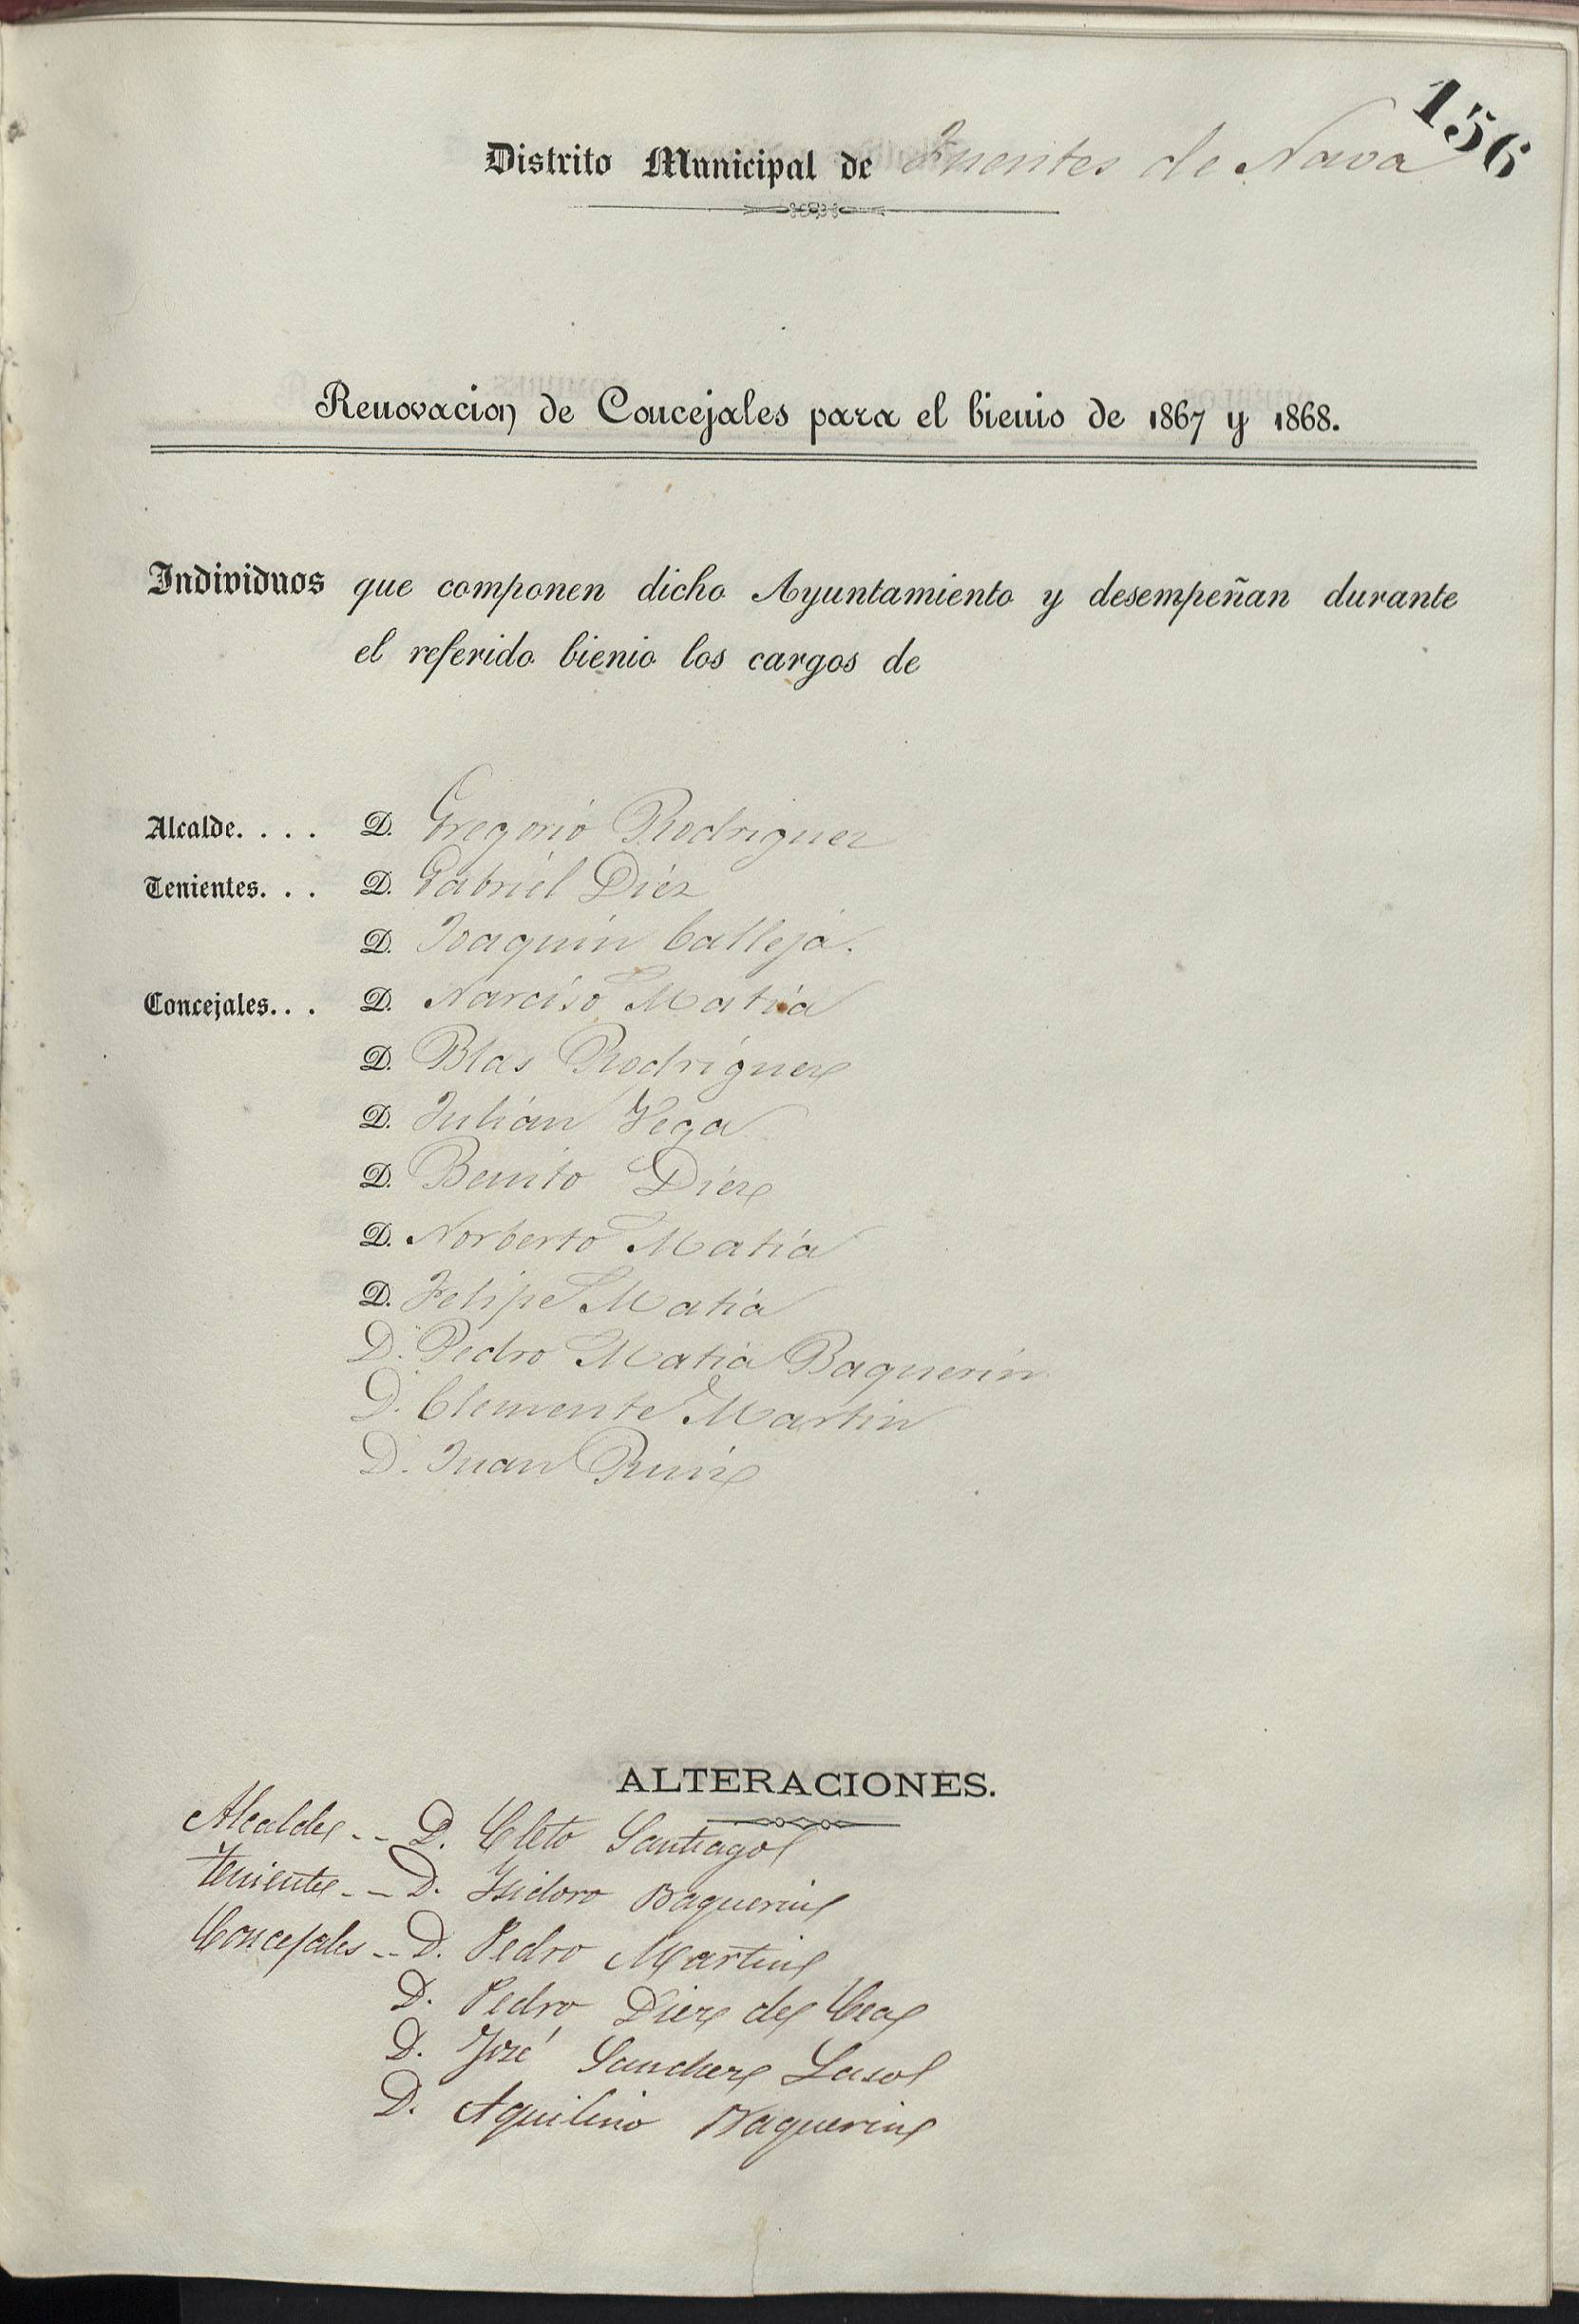 156
Distrito Municipal de Fuentes de Nava
Renovacion de Concejales para el bienio de 1867 y 1868.
Individuos que componen dicho Ayuntamiento y desempeñan durante
el referido bienio los cargos de
Alcalde. . . . D. Gregorio Rodriguez
Tenientes. . . D. Gabriel Diez
D. Joaquin Calleja.
Concejales. . . D. Narciso Matia
D. Blas Rodriguez
D. Julián Vega
D. Benito Diez
D. Norberto Matia
D. Felipe Matia
D. Pedro Matia Baquerin
D. Clemente Martin
D. Juan Ruiz
ALTERACIONES.
Alcalde -- D. Cleto Santiago
Teniente -- D. Isidoro Baquerin
Concejales -- D. Pedro Martin
D. Pedro Diez de Cea
D. José Sanchez Laso
D. Aquilino Vaquerin